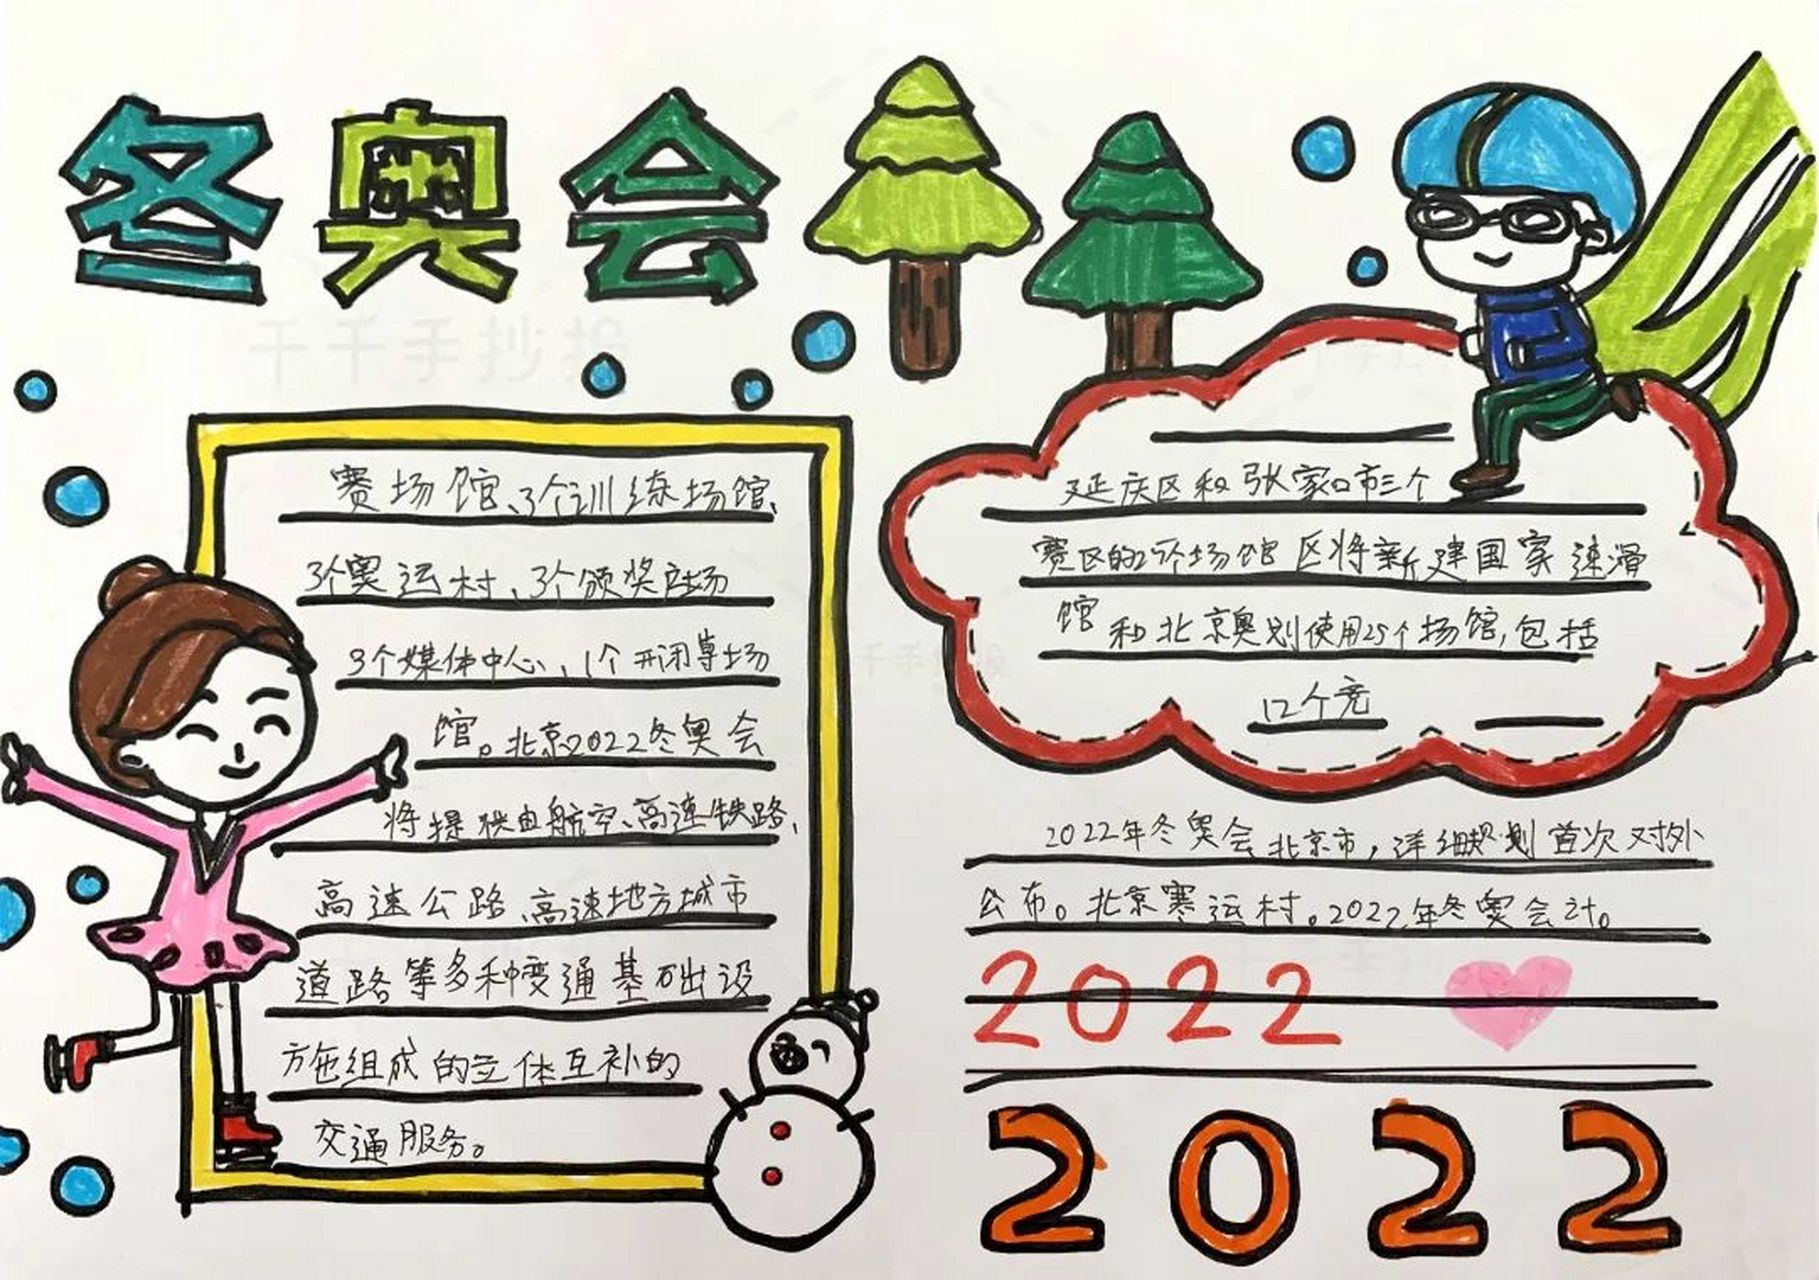 冬奥会
赛场馆、3个训练场馆、
3个赛运村、3个颁奖广场
3个媒体中心、1个开闭幕场
馆。北京2022冬奥会
将提供由航空、高速铁路、
高速公路、高速地方城市
道路等多种变通基础设
施组成的立体互补的
交通服务。
延庆区和张家口市三个
赛区的25个场馆区将新建国家速滑
馆和北京奥划使用25个场馆,包括
12个竞
2022年冬奥会北京市,详细规划首次对外
公布。北京赛运村。2022年冬奥会计。
2022
2022
千千手抄报
千千手抄报